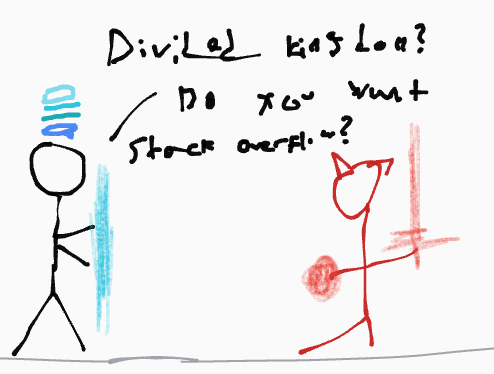 Divided kingdom?
Do you want
stack overflow?